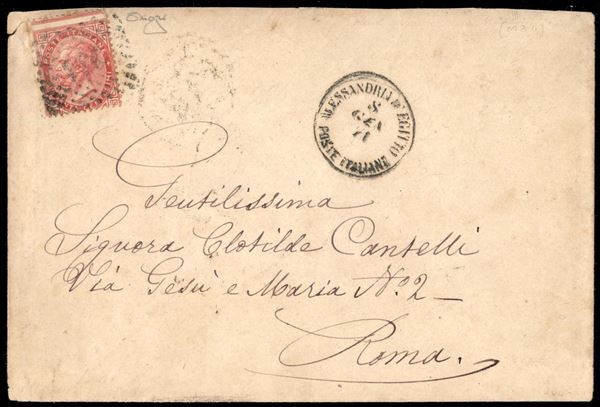 POSTE ITALIANE
ALESSANDRIA D'EGITTO
8
GEN
71
POSTE ITALIANE
Gentilissima
Signora Clotilde Cantelli
Via Gesù e Maria No. 2 _
Roma.